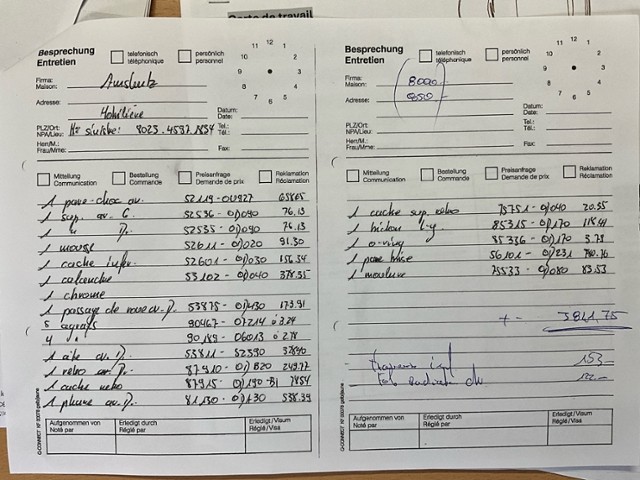 Carte de travail
Besprechung
Entretien
telefonisch
téléphonique
persönlich
personnel
11 12 1
10 2
9 3
8 4
7 6 5
Firma:
Maison:
Adresse:
Mobilière
Datum:
Date:
PLZ/Ort:
NPA/Lieu:
N= sinistre: 8023.4537.1834
Tel.:
Tél.:
Herr/M.
Frau/Mme:
Fax:
Mitteilung
Communication
Bestellung
Commande
Preisanfrage
Demande de prix
Reklamation
Réclamation
1 pare-choc av. 52119-0U927
1 sup. av. G. 52536-0)040 76.13
1 " Dr. 52535-0)090 76.13
1 mousse 52611-0)020 91.30
1 cache infr. 52601-0)030 156.34
1 calandre 53102-0)040 378.35
1 chrome
1 passage de roue av. D. 53875-0)430 173.91
5 agrafs 90467-07214 à 3.24
4 " 90189-06013 à 2.78
1 aile av. D. 53811-52390
1 retro av. D. 87910-0)B20 249.77
1 cache retro 87915-0)190-B1
1 phare av. D. 81130-0)130 538.39
Aufgenommen von
Noté par
Erledigt durch
Réglé par
Erledigt/Visum
Réglé/Visa
Besprechung
Entretien
telefonisch
téléphonique
persönlich
personnel
11 12 1
10 2
9 3
8 4
7 6 5
Firma:
Maison:
8000.-
Adresse:
Datum:
Date:
PLZ/Ort:
NPA/Lieu:
Tel.:
Tél.:
Herr/M.
Frau/Mme:
Fax:
Mitteilung
Communication
Bestellung
Commande
Preisanfrage
Demande de prix
Reklamation
Réclamation
1 cache sup. retro 75751-0)040 20.55
1 bidon l-g 85315-0)170 118.41
1 o-ring 85336-0)170 3.73
1 pare brise 56101-0)231
1 moulure 75533-0)080 83.53
+- 3841.75
153.-
Aufgenommen von
Noté par
Erledigt durch
Réglé par
Erledigt/Visum
Réglé/Visa